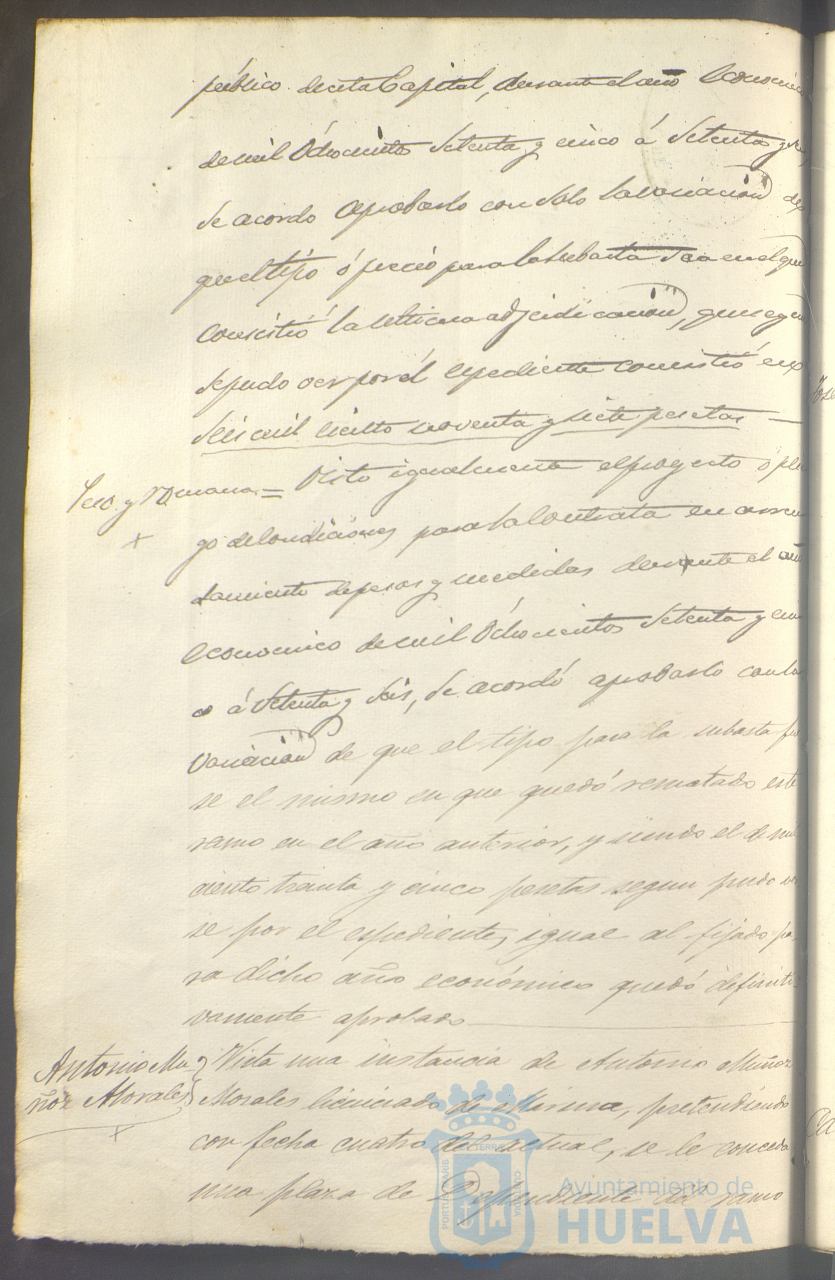 público de esta Capital, durante el año economico
de mil Ochocientos Setenta y cinco á Setenta y
Se acordo aprobarlo con solo la variacion de
que el tipo ó precio para la subasta sea en el que
consistió la ultima adjudicacion, que segun
se pudo ver por el expediente consistió en
Seis mil ciento noventa y siete pesetas —
Peso y Romana = Visto igualmente el proyecto ó plie
go de Condiciones para la Contrata en arren
damiento de pesas y medidas durante el año
economico de mil Ochocientos Setenta y cin
co á Setenta y Seis, Se acordó aprobarlo con la
Variacion de que el tipo para la subasta fue
se el mismo en que quedó rematado este
ramo en el año anterior, y siendo el de mil
ciento treinta y cinco pesetas segun pudo ver
se por el espediente, igual al fijado pa
ra dicho año económico quedó definiti
vamente aprobado
Antonio Mu
ñoz Morales
Vista una instancia de Antonio Muñoz
Morales licenciado de Marina, pretendiendo
con fecha cuatro del actual, se le conceda
una plaza de Dependiente del ramo
Ayuntamiento de
HUELVA